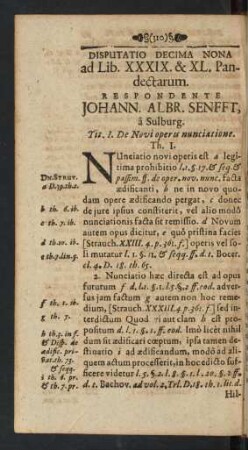 (110)
DISPUTATIO DECIMA NONA
ad Lib. XXXIX. & XL. Pan-
dectarum.
RESPONDENTE
JOHANN. ALBR. SENFFT,
â Sulburg.
Tit. I. De Novi operis nunciatione.
Th. I.
NUnciatio novi operis est a legi-
tima prohibitio l. 1. §. 17. & seq &
passim. ff. de oper. nov. nunc. facta
ædificanti, b ne in novo quo-
dam opere ædificando pergat, c donec
de jure ipsius constiterit, vel alio modô
nunciationis facta sit remissio. d Novum
autem opus dicitur, e quô pristina facies
[Strauch. XXIII. 4. p. 361. f.] operis vel so-
li mutatur l. 1. §. 11, & seqq. ff. d. t. Bocer.
cl. 4. D. 18. th. 65.
2. Nunciatio hæc directa est ad opus
futurum f d. l. 1. §. 1. l. 5. §. 2 ff. eod. adver-
sus jam factum g autem non hoc reme-
dium, [Strauch. XXXIII. 4 p. 361. f.] sed in-
terdictum Quod vi aut clam h est pro-
positum d. l. 1. §. 1. ff. eod. Imò licèt nihil
dum sit ædificari cœptum, ipsa tamen de-
stinatio i ad ædificandum, modò ad ali-
quem actum processerit, in hoc edicto suf-
ficere videtur
d. t. Bachov. ad vol. 2, Trl. D. 18. th. 1. lit. d.
Hil-
DN. STRUV.
b th. 6. ib.
c th. 7. ib.
d th. 10. ib.
f th. 1. ib.
g th. 7.
b th. 3. in f.
& Disp. de
ædific. pri-
vat. th. 73.
& seqq.
i th. 6. pr.
& th. 7. pr.